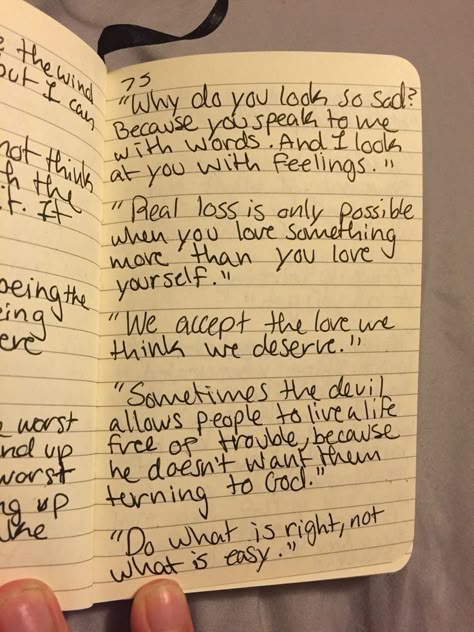 the wind
but I can
not think
the
It
being the
ere
worst
nd up
worst
up
the
75
"Why do you look so sad?
Because you speak to me
with words. And I look
at you with feelings."
"Real loss is only possible
when you love something
more than you love
yourself."
"We accept the love we
think we deserve."
"Sometimes the devil
allows people to live a life
free of trouble, because
he doesn't want them
turning to God."
"Do what is right, not
what is easy."